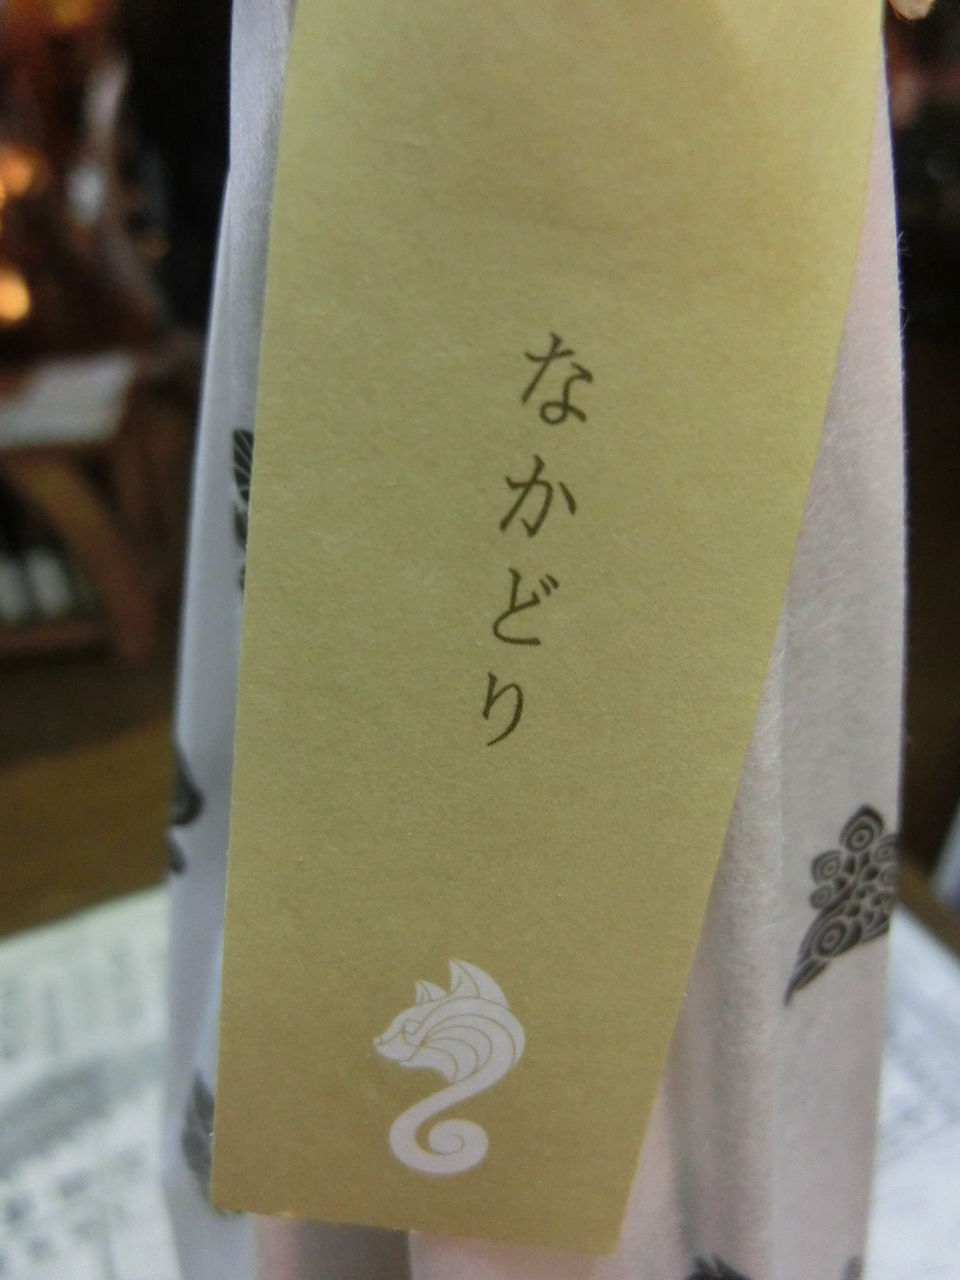 なかどり